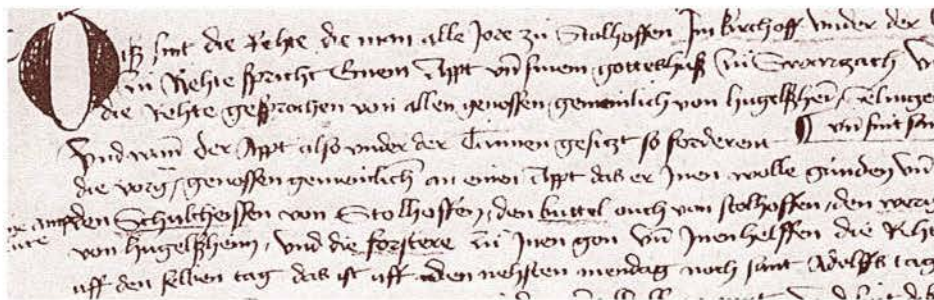 Diß sint die Rehte die man alle Jore zu Stalhoffen Jm kirchoff vnder der
zu Rehte spricht Einem Appt vnd sinem gotteshuß zu Swarzach
die Rehte gesprochen von allen genossen gemeinlich von hugelßhein, Selingen
Vnd wann der Appt also vnder der Linnen gesizt so forderent ¶ vnd sint
die vorg. genossen gemeinlich an einen Appt das er Jnen wolle gunden vnd
den Schultheissen von Stolhoffen, den buttel ouch von stolhoffen, den
von hugelßheim, vnd die forstere zu Jnen gon vnd Jnen helffen die Rehte
uff den selben tag das ist uff den nehsten mendag noch sant Adelffs tag